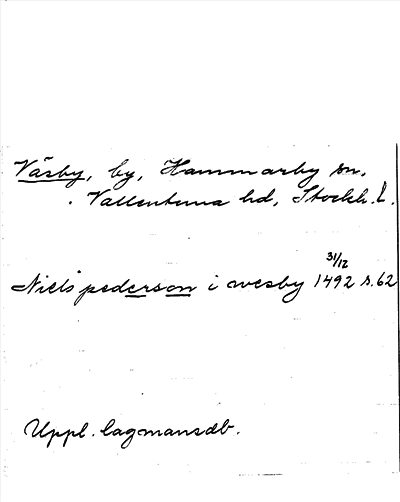 Väsby, by, Hammarby sn.
Vallentuna hd, Stockh. l.
Niels pederson i wesby 31/12 1492 s. 62
Uppl. lagmansdb.